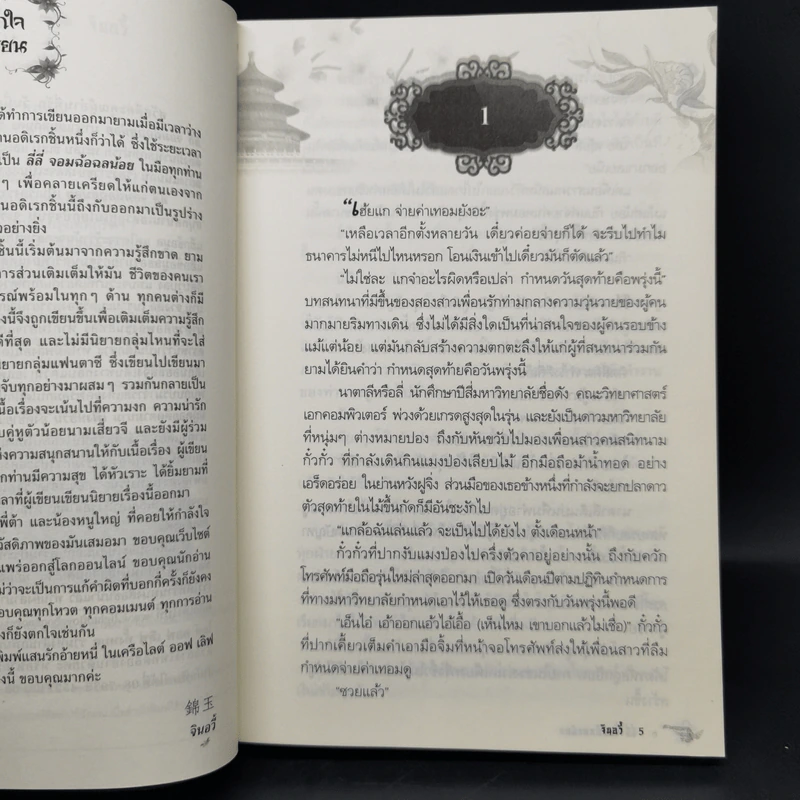 าใจ
ยน
ด้ทำการเขียนออกมายามเมื่อมีเวลาว่าง
านอดิเรกชิ้นหนึ่งก็ว่าได้ ซึ่งใช้ระยะเวลา
เป็น ลี่ลี่ จอมฉ้อฉลน้อย ในมือทุกท่าน
ๆ เพื่อคลายเครียดให้แก่ตนเองจาก
นอดิเรกชิ้นนี้ถึงกับออกมาเป็นรูปร่าง
อย่างยิ่ง
ชิ้นนี้เริ่มต้นมาจากความรู้สึกขาด ยาม
การส่วนเติมเต็มให้มัน ชีวิตของคนเรา
รณ์พร้อมในทุกๆ ด้าน ทุกคนต่างก็มี
งนี้จึงถูกเขียนขึ้นเพื่อเติมเต็มความรู้สึก
ดีที่สุด และไม่มีนิยายกลุ่มไหนที่จะใส่
นิยายกลุ่มแฟนตาซี ซึ่งเขียนไปเขียนมา
จับทุกอย่างมาผสมๆ รวมกันกลายเป็น
นื้อเรื่องจะเน้นไปที่ความงก ความน่ารัก
บคู่หูตัวน้อยนามเสี่ยวจี และยังมีผู้ร่วม
ังความสนุกสนานให้กับเนื้อเรื่อง ผู้เขียน
กท่านมีความสุข ได้หัวเราะ ได้ยิ้มยามที่
ลาที่ผู้เขียนเขียนนิยายเรื่องนี้ออกมา
พี่ต้า และน้องหนูใหญ่ ที่คอยให้กำลังใจ
วัสดิภาพของมันเสมอมา ขอบคุณเว็บไซต์
แพร่ออกสู่โลกออนไลน์ ขอบคุณนักอ่าน
ม่ว่าจะเป็นการแก้คำผิดที่บอกกี่ครั้งก็ยังคง
อบคุณทุกโหวต ทุกคอมเมนต์ ทุกการอ่าน
งก็ยังตกใจเช่นกัน
พิมพ์แสนรักอ้ายหนี่ ในเครือไลต์ ออฟ เลิฟ
งนี้ ขอบคุณมากค่ะ
錦玉
จินอวี้
1
“เฮ้ยแก จ่ายค่าเทอมยังอะ”
“เหลือเวลาอีกตั้งหลายวัน เดี๋ยวค่อยจ่ายก็ได้ จะรีบไปทำไม
ธนาคารไม่หนีไปไหนหรอก โอนเงินเข้าไปเดี๋ยวมันก็ตัดแล้ว”
“ไม่ใช่ละ แกจำอะไรผิดหรือเปล่า กำหนดวันสุดท้ายคือพรุ่งนี้”
บทสนทนาที่มีขึ้นของสองสาวเพื่อนรักท่ามกลางความวุ่นวายของผู้คน
มากมายริมทางเดิน ซึ่งไม่ได้มีสิ่งใดเป็นที่น่าสนใจของผู้คนรอบข้าง
แม้แต่น้อย แต่มันกลับสร้างความตกตะลึงให้แก่ผู้ที่สนทนาร่วมกัน
ยามได้ยินคำว่า กำหนดสุดท้ายคือวันพรุ่งนี้
นาตาลีหรือลี่ นักศึกษาปีสี่มหาวิทยาลัยชื่อดัง คณะวิทยาศาสตร์
เอกคอมพิวเตอร์ พ่วงด้วยเกรดสูงสุดในรุ่น และยังเป็นดาวมหาวิทยาลัย
ที่หนุ่มๆ ต่างหมายปอง ถึงกับหันขวับไปมองเพื่อนสาวคนสนิทนาม
กั๋วกั๋ว ที่กำลังเดินกินแมงป่องเสียบไม้ อีกมือถือม้าน้ำทอด อย่าง
เอร็ดอร่อย ในย่านหวังฝูจิ่ง ส่วนมือของเธอข้างหนึ่งที่กำลังจะยกปลาดาว
ตัวสุดท้ายในไม้ขึ้นกัดก็มีอันชะงักไป
“แกล้อฉันเล่นแล้ว จะเป็นไปได้ยังไง ตั้งเดือนหน้า”
กั๋วกั๋วที่ปากงับแมงป่องไปครึ่งตัวคาอยู่อย่างนั้น ถึงกับควัก
โทรศัพท์มือถือรุ่นใหม่ล่าสุดออกมา เปิดวันเดือนปีตามปฏิทินกำหนดการ
ที่ทางมหาวิทยาลัยกำหนดเอาไว้ให้เธอดู ซึ่งตรงกับวันพรุ่งนี้พอดี
“เอ็นไอ๋ เอ้าออกแอ้วไอ้เอื้อ (เห็นไหม เขาบอกแล้วไม่เชื่อ)” กั๋วกั๋ว
ที่ปากเคี้ยวเต็มคำเอามือจิ้มที่หน้าจอโทรศัพท์ส่งให้เพื่อนสาวที่ลืม
กำหนดจ่ายค่าเทอมดู
“ซวยแล้ว”
จินอวี้ 5